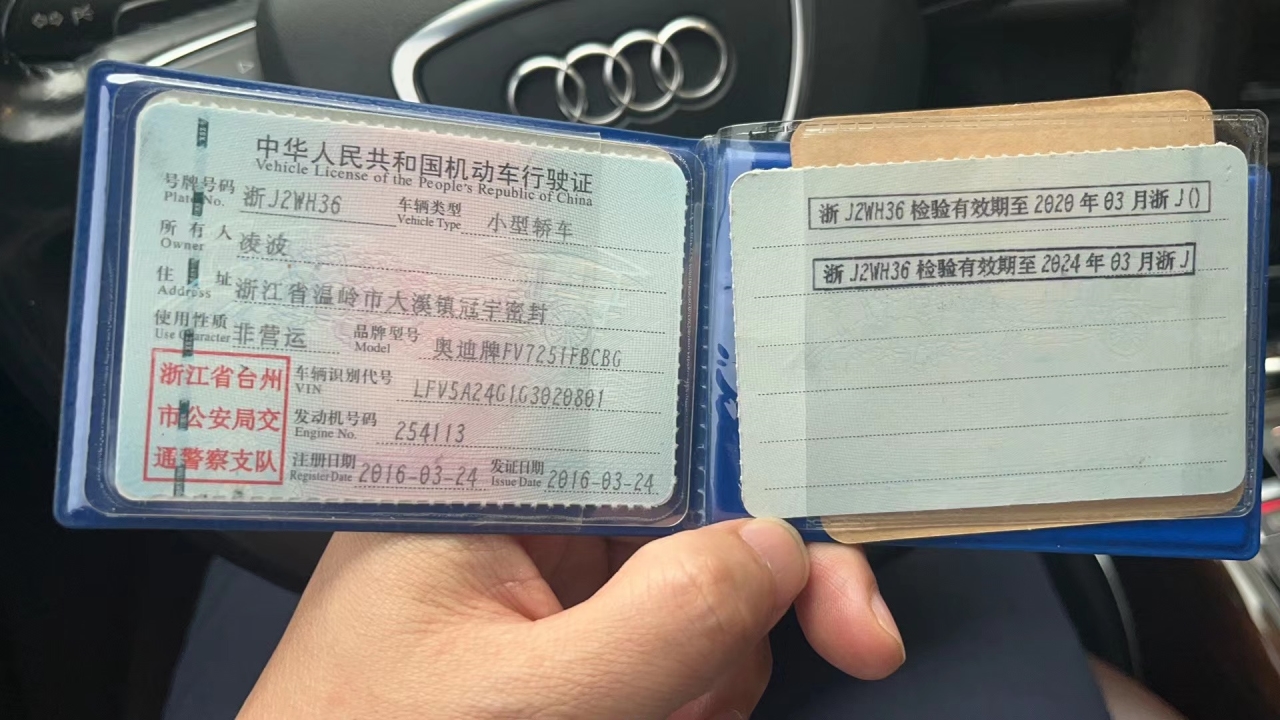 中华人民共和国机动车行驶证
Vehicle License of the People's Republic of China
号牌号码 浙J2WH36 车辆类型 小型轿车
Plate No. Vehicle Type
所有人 凌波
Owner
住址 浙江省温岭市大溪镇冠宇密封
Address
使用性质 非营运 品牌型号 奥迪牌FV7251FBCBG
Use Character Model
浙江省台州
市公安局交
通警察支队
车辆识别代号 LFV5A24G1G3020801
VIN
发动机号码 254113
Engine No.
注册日期 2016-03-24 发证日期 2016-03-24
Register Date Issue Date
浙 J2WH36 检验有效期至 2020 年 03 月浙 J()
浙 J2WH36 检验有效期至 2024 年 03 月浙 J